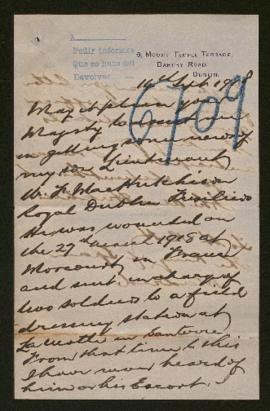 A
Pedir informes
Que se haga del
Devolver
9, MOUNT TEMPLE TERRACE,
DARTRY ROAD,
DUBLIN.
14 Sept. 1918
6709
May it please your
Majesty to assist me
in getting some news of
my son Lieutenant
W. F. MacHutchison
Royal Dublin Fusiliers
He was wounded on
the 27th August 1918 at
Morcourt in France
and sent in charge of
two soldiers to a field
dressing station at
Lamotte in Santerre
From that time to this
I have never heard of
him or his Escort.